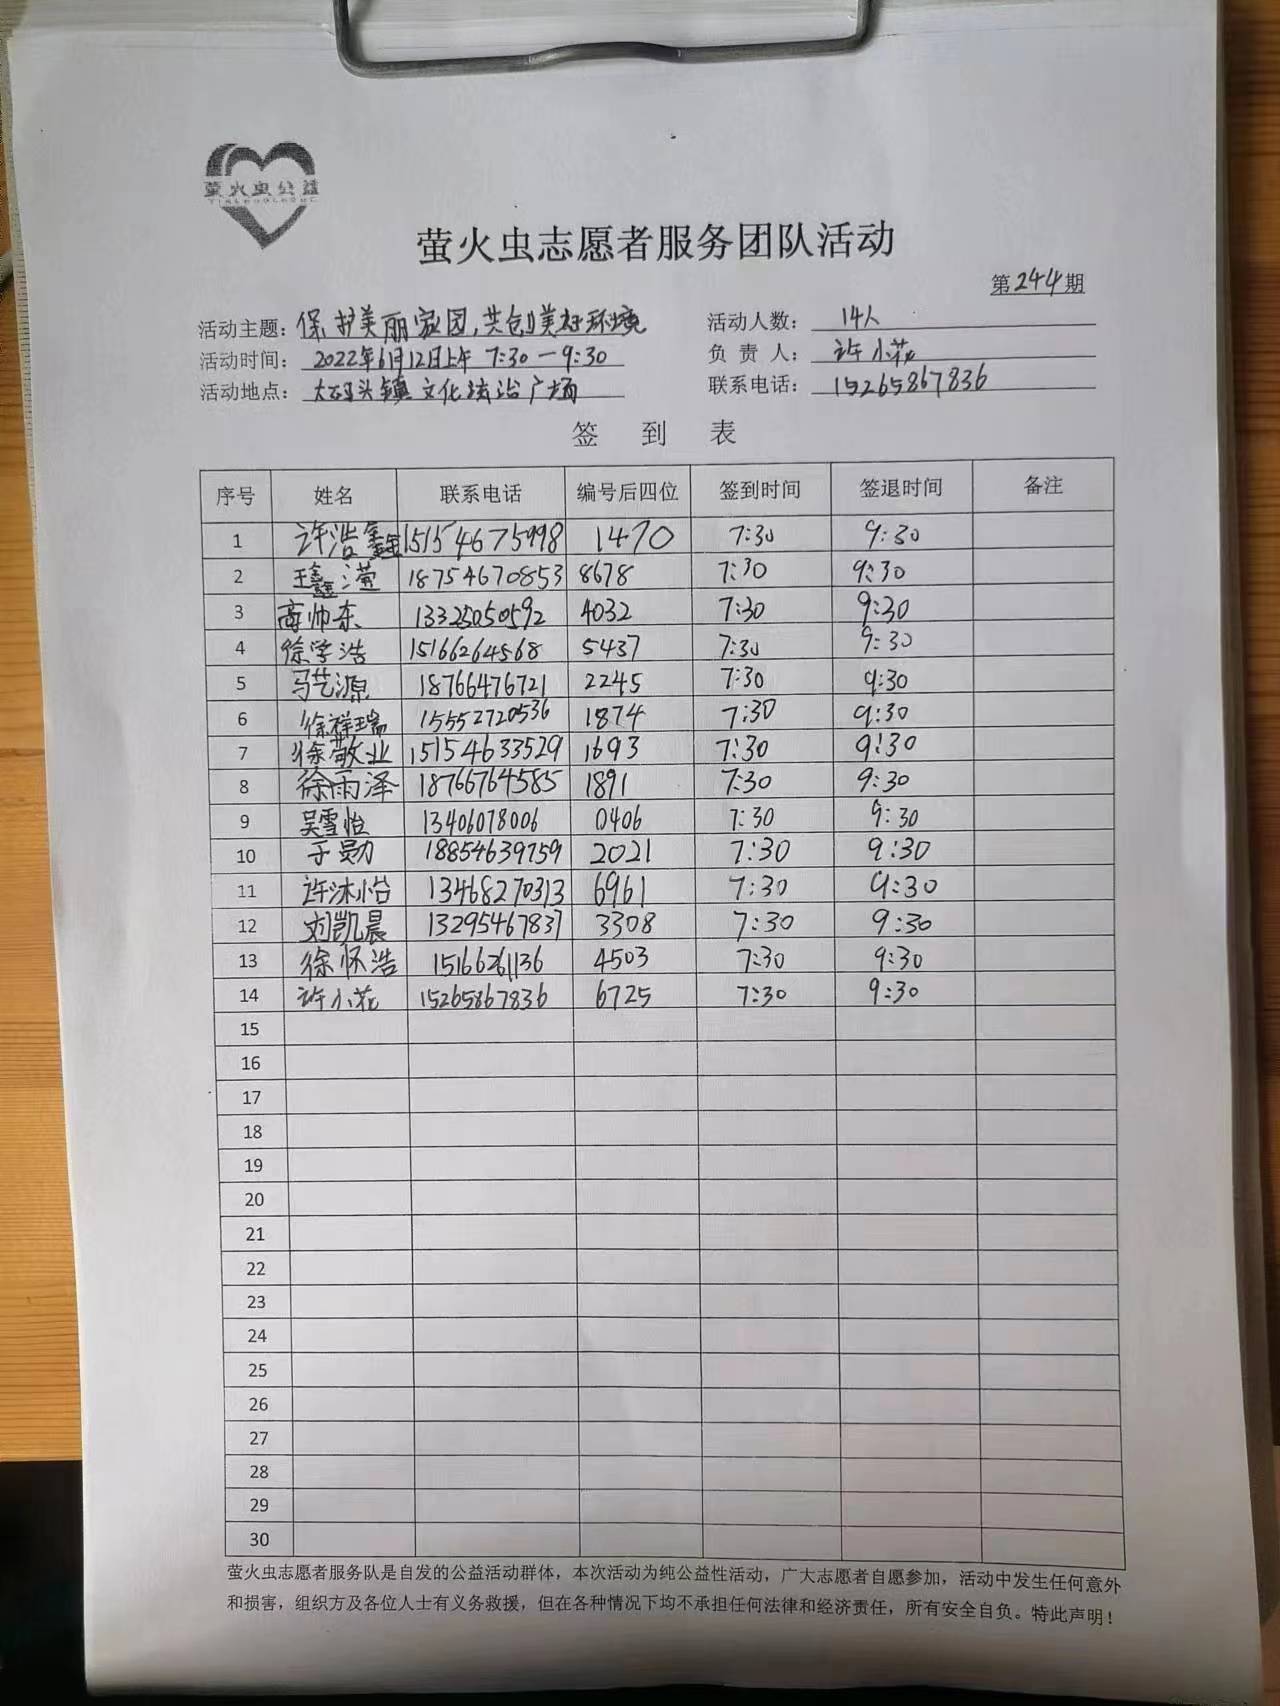 萤火虫公益
萤火虫志愿者服务团队活动
第244期
活动主题：保护美丽家园，共创美好环境 活动人数：14人
活动时间：2022年6月12日上午 7:30—9:30 负责人：许小花
活动地点：大码头镇文化法治广场 联系电话：15265867836
签到表
序号 姓名 联系电话 编号后四位 签到时间 签退时间 备注
1 许浩鑫 15154675998 1470 7:30 9:30
2 王鑫滢 18754670853 8678 7:30 9:30
3 高帅东 13325050592 4032 7:30 9:30
4 徐学浩 15166264568 5437 7:30 9:30
5 马艺源 18766476721 2245 7:30 9:30
6 徐祥瑞 15552720536 1874 7:30 9:30
7 徐敬业 15154633529 1693 7:30 9:30
8 徐雨泽 18766764585 1891 7:30 9:30
9 吴雪怡 13406078006 0406 7:30 9:30
10 于勋 18854639759 2021 7:30 9:30
11 许沐怡 13468270313 6961 7:30 9:30
12 刘凯晨 13295467837 3308 7:30 9:30
13 徐怀浩 15166261136 4503 7:30 9:30
14 许小花 15265867836 6725 7:30 9:30
15
16
17
18
19
20
21
22
23
24
25
26
27
28
29
30
萤火虫志愿者服务队是自发的公益活动群体，本次活动为纯公益性活动，广大志愿者自愿参加，活动中发生任何意外
和损害，组织方及各位人士有义务救援，但在各种情况下均不承担任何法律和经济责任，所有安全自负。特此声明！